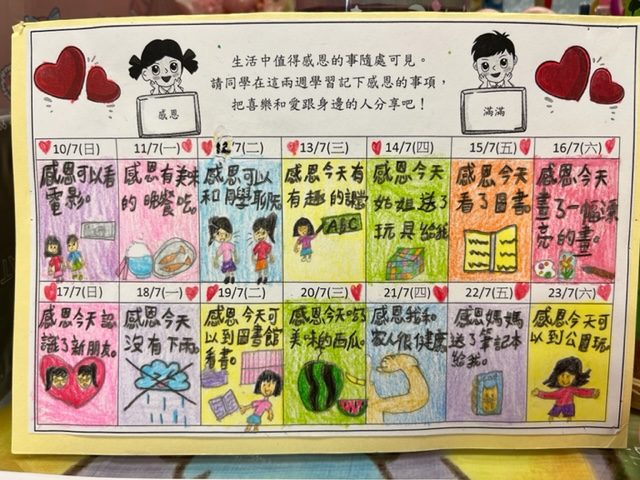 生活中值得感恩的事隨處可見。
請同學在這兩週學習記下感恩的事項，
把喜樂和愛跟身邊的人分享吧！
感恩
滿滿
10/7(日)
11/7(一)
12/7(二)
13/7(三)
14/7(四)
15/7(五)
16/7(六)
感恩可以看
電影。
感恩有美味
的晚餐吃。
感恩可以
和同學聊天
感恩今天有
有趣的課堂
ABC
感恩今天
姑姐送了
玩具給我
感恩今天
看了圖書。
感恩今天
畫了一幅漂
亮的畫。
17/7(日)
18/7(一)
19/7(二)
20/7(三)
21/7(四)
22/7(五)
23/7(六)
感恩今天認
識了新朋友。
感恩今天
沒有下雨。
感恩今天可
以到圖書館
看書。
感恩今天吃了
美味的西瓜。
感恩我和
家人很健康
感恩媽媽
送了筆記本
給我。
感恩今天可
以到公園玩。